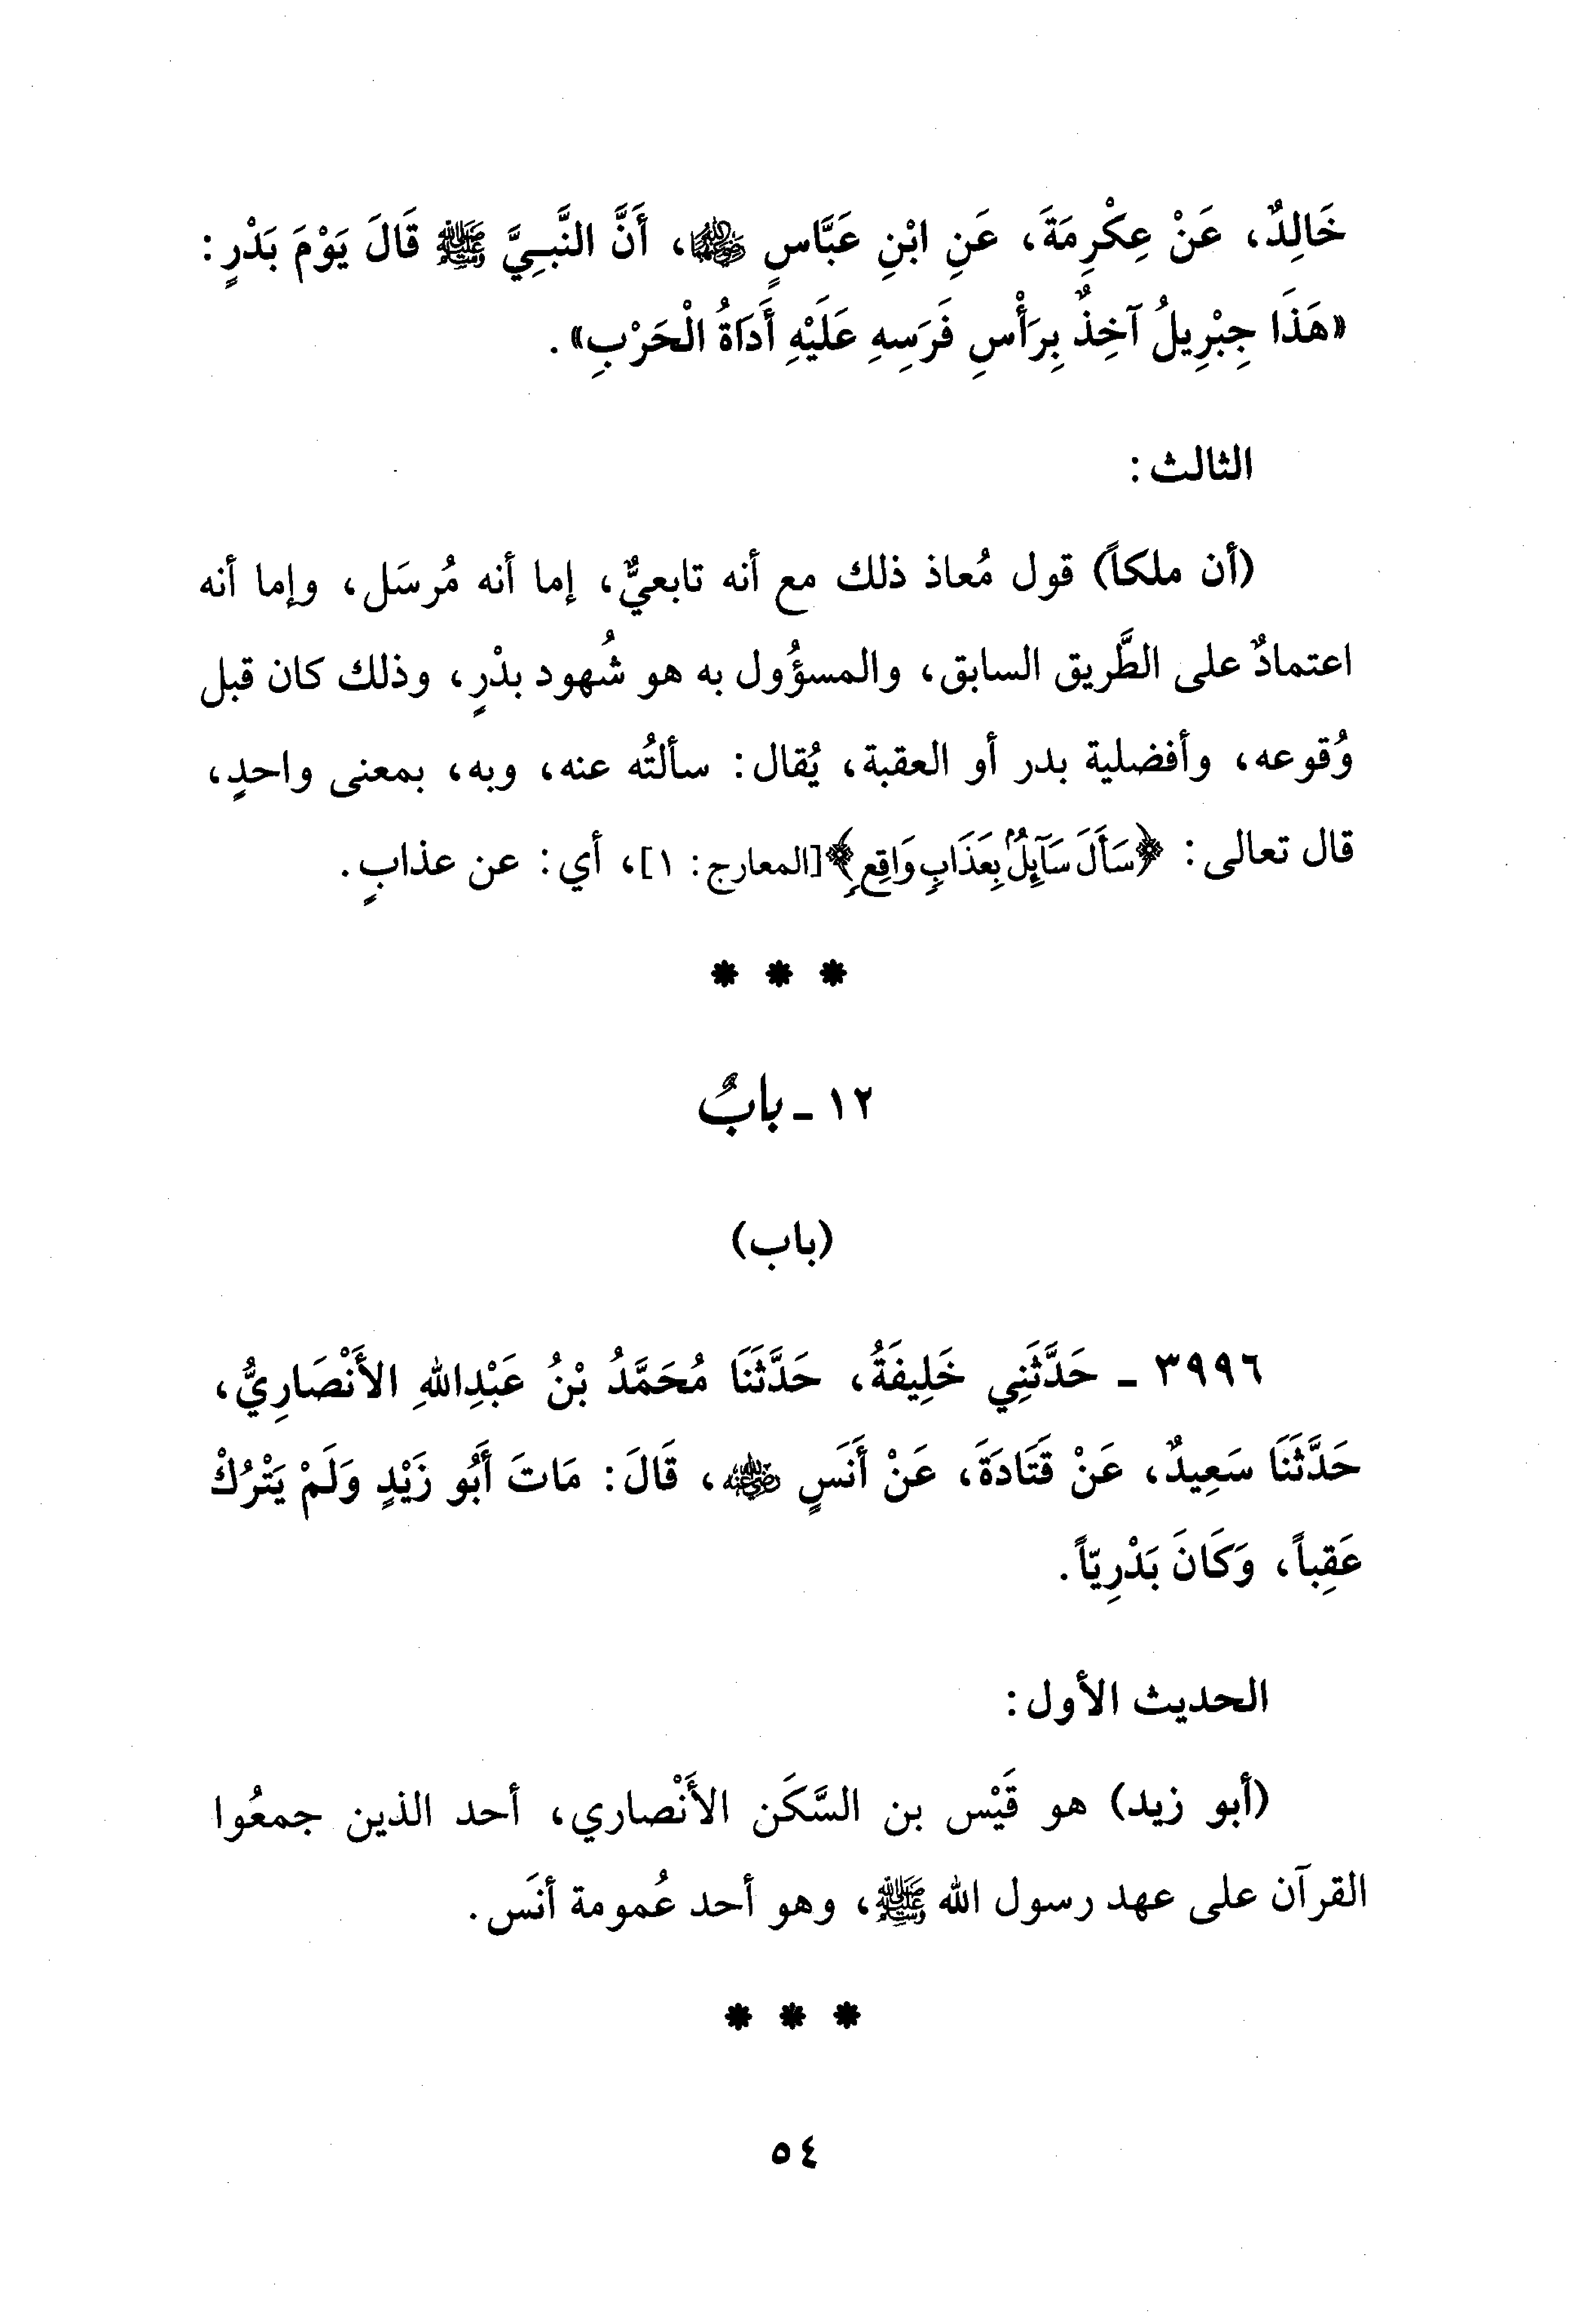 خَالِدٌ، عَنْ عِكْرِمَةَ، عَنِ ابْنِ عَبَّاسٍ رضي الله عنهما، أَنَّ النَّبِيَّ ﷺ قَالَ يَوْمَ بَدْرٍ:
«هَذَا جِبْرِيلُ آخِذٌ بِرَأْسِ فَرَسِهِ عَلَيْهِ أَدَاةُ الْحَرْبِ».
الثالث:
(أن ملكاً) قول مُعاذ ذلك مع أنه تابعيٌّ، إما أنه مُرسَل، وإما أنه
اعتمادٌ على الطَّريق السابق، والمسؤُول به هو شُهود بدْرٍ، وذلك كان قبل
وُقوعه، وأفضلية بدر أو العقبة، يُقال: سألتُه عنه، وبه، بمعنى واحدٍ،
قال تعالى: ﴿سَأَلَ سَآئِلٌۢ بِعَذَابٍ وَاقِعٍ﴾[المعارج: ١]، أي: عن عذابٍ.
* * *
١٢ - بابٌ
(باب)
٣٩٩٦ - حَدَّثَنِي خَلِيفَةُ، حَدَّثَنَا مُحَمَّدُ بْنُ عَبْدِاللهِ الأَنْصَارِيُّ،
حَدَّثَنَا سَعِيدٌ، عَنْ قَتَادَةَ، عَنْ أَنَسٍ رضي الله عنه، قَالَ: مَاتَ أَبُو زَيْدٍ وَلَمْ يَتْرُكْ
عَقِباً، وَكَانَ بَدْرِيّاً.
الحديث الأول:
(أبو زيد) هو قَيْس بن السَّكَن الأَنْصاري، أحد الذين جمعُوا
القرآن على عهد رسول الله ﷺ، وهو أحد عُمومة أنَس.
* * *
٥٤